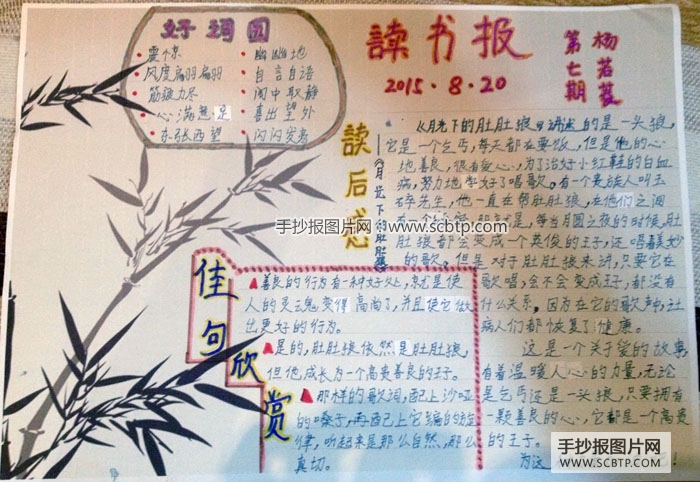 好词园
震惊
风度翩翩
筋疲力尽
心满意足
东张西望
幽幽地
自言自语
闹中取静
喜出望外
闪闪发亮
读书报
2015.8.20
第七期
读后感
——《月光下的肚肚狼》
《月光下的肚肚狼》讲述的是一头狼,
它是一个乞丐,每天都在要饭,但是他的心
地善良,很有爱心,为了治好小红鞋的白血
病,努力地学好了唱歌。有一个贵族人叫玉
碎先生,他一直在帮肚肚狼,在他们之间
,等当月圆之夜的时候,肚
肚狼都会变成一个英俊的王子,还唱着美妙
的歌。但是对于肚肚狼来讲,只要它在
歌唱,会不会变成王子,都没有
什么关系。因为在它的歌声,让
病人们都恢复了健康。
这是一个关于爱的故事
有着温暖人心的力量,无论
是乞丐还是一头狼,只要拥有
一颗善良的心,它都是一个高贵
的王子。
为这
佳句欣赏
善良的行为有一种好处,就是使
人的灵魂变得高尚了,并且使它做
出更好的行为。
是的,肚肚狼依然是肚肚狼,
但他成长为一个高贵善良的王子。
那样的歌词,配上沙哑
的嗓子,再配上它编的旋
律,听起来是那么自然,那么
真切。
手抄报图片网
www.scbtp.com
手抄报图片网
WWW.SCBTP.COM